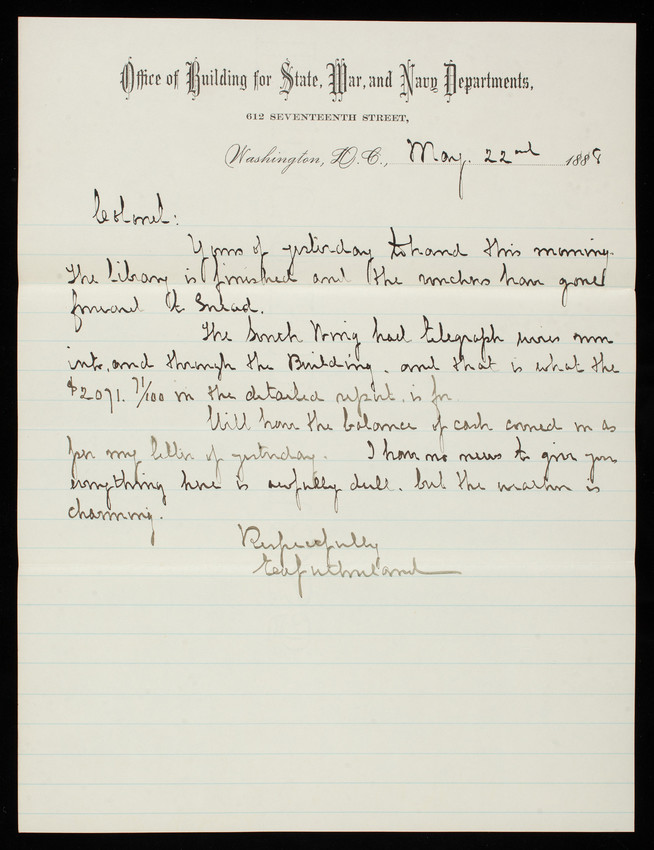 Office of Building for State, War, and Navy Departments,
612 SEVENTEENTH STREET,
Washington, D.C., May. 22nd 1888
Colonel:
Yours of yesterday to hand this morning.
The Library is finished and the vouchers have gone
forward to Snead.
The South Wing had telegraph wires run
into, and through the Building. and that is what the
$2071. 71/100 in the detailed report, is for
Will have the balance of cash carried on as
per my letter of yesterday. I have no news to give you
everything here is awfully dull. but the weather is
charming.
Respectfully